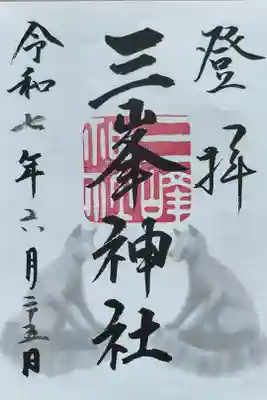 登拝
三峯神社
令和七年六月二十五日